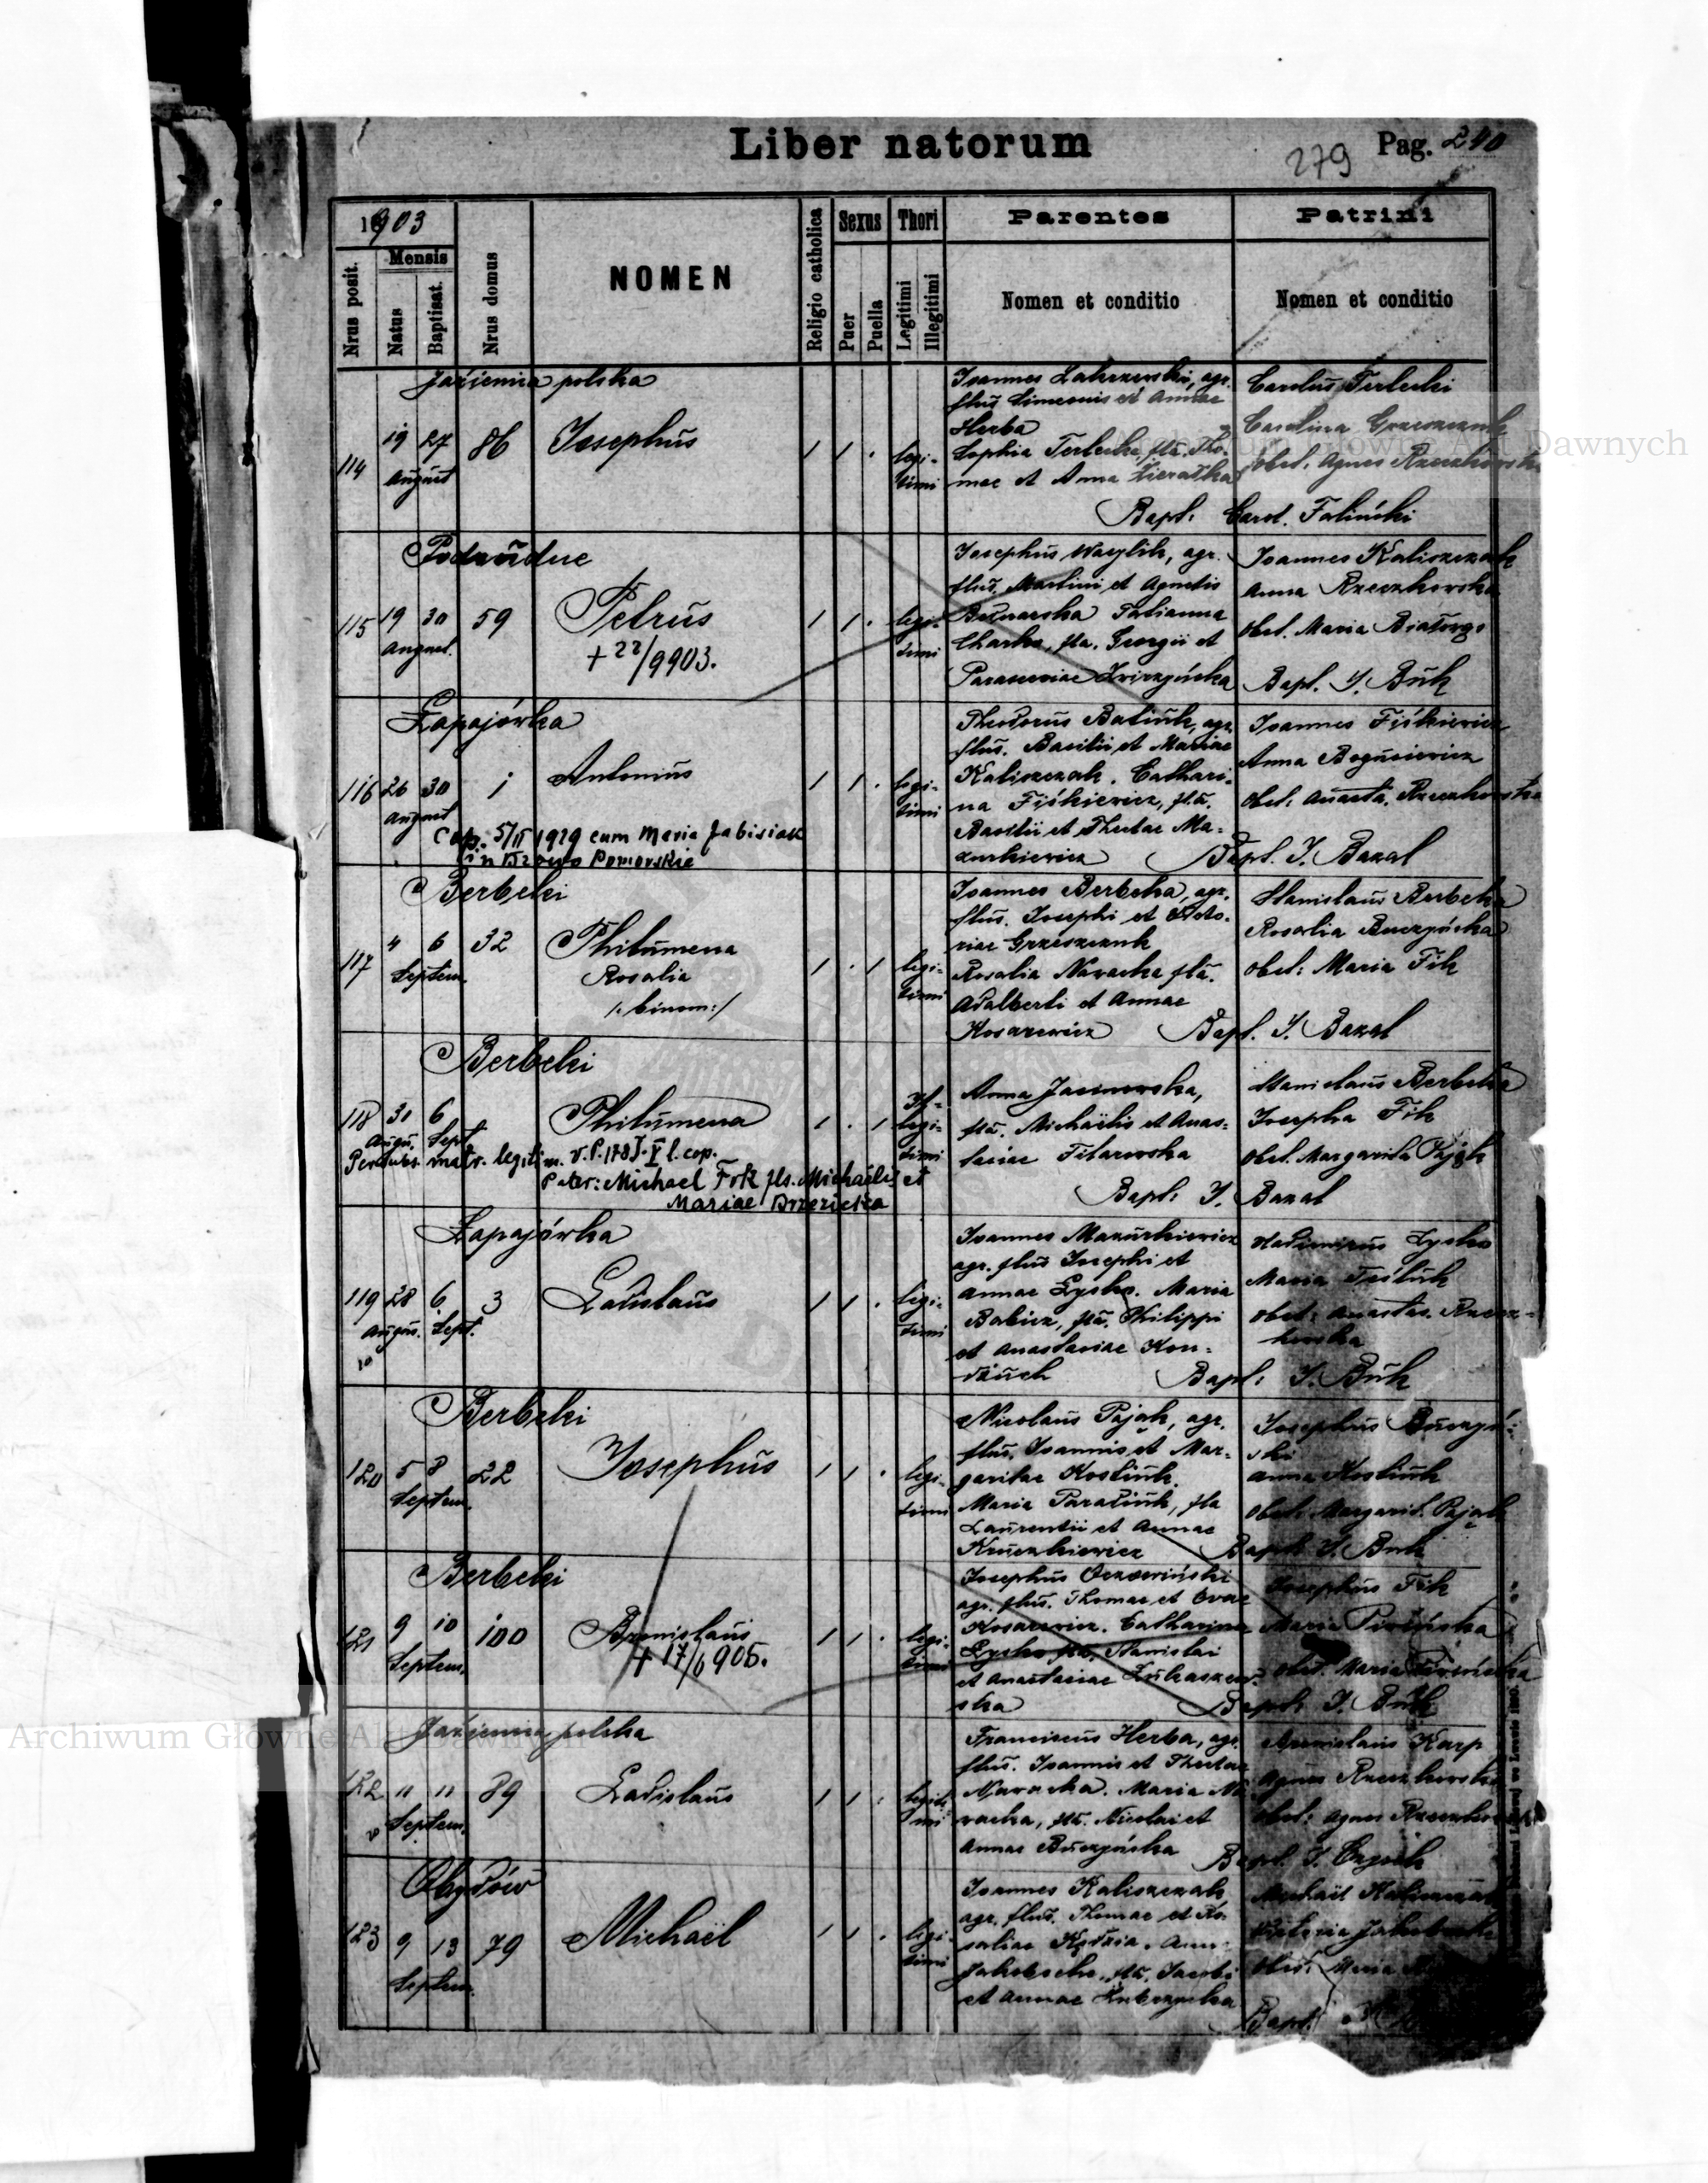 Liber natorum
279
Pag. 240
1903
Nrus posit.
Mensis
Natus
Baptisat.
Nrus domus
NOMEN
Religio catholica
Sexus
Puer
Puella
Thori
Legitimi
Illegitimi
Parentes
Nomen et conditio
Patrini
Nomen et conditio
Jazienica polska
114
19 27
August
86
Josephus
1 1 .
legi-
timi
Joannes Zakrzewski, agr.
flus Simeonis et Annae
Herba
Sophia Terlecka, fla. Tho-
mae et Anna
Carolus Terlecki
Carolina Grzeszczuk
obst. Agnes Rzeczkowska
Bapt. Carol. Faliński
115
19 30
August.
59
Petrus
+ 22/9903.
1 1 .
legi-
timi
Josephus agr.
flus. Martini et Agnetis
Tatianna
fla. Georgii et
Parasceviae
Joannes Kaliszczak
Anna Rzeczkowska
obst. Maria
Bapt. J. Buk
Łapajówka
116
26 30
August
1
Antonius
1 1 .
legi-
timi
Cop. 5/II 1929 cum Maria Jabisiak
in Pomorskie
Theodorus Batiuk, agr.
flus. Basilii et Mariae
Kaliszczak. Cathari-
na Fiśkiewicz, fla.
Basilii et Theclae Ma-
zurkiewicz
Joannes Fiśkiewicz
Anna Bogusiewicz
obst: Anasta. Rzeczkowska
Bapt. J. Bazal
Berbeki
117
4 6
Septem.
32
Philumena
Rosalia
/: binom:/
1 . 1
legi-
timi
Joannes Berbeka, agr.
flus. Josephi et Victo-
riae Grzeszczuk
Rosalia Nawacka fla.
Adalberti et Annae
Kosarewicz
Stanislaus Berbeka
Rosalia Buczyńska
obst: Maria Fik
Bapt. J. Bazal
Berbeki
118
31 6
Augu. Sept.
Philumena
1 . 1
Il-
legi-
timi
Per subs. matr. legitim. v. p. 178 T. V l. cop.
Pater: Michael Fok fls. Michaelis et
Mariae Brzezicka
Anna Jasinowska,
fla. Michaelis et Anas-
tasiae Filarowska
Stanislaus Berbeka
Josepha Fik
obst. Margarita Pająk
Bapt: J. Bazal
Łapajówka
119
28 6
Augus. Sept.
3
Ladislaus
1 1 .
legi-
timi
Joannes Mazurkiewicz
agr. flus Josephi et
Annae Łysko. Maria
Babicz, fla. Philippi
et Anastasiae Kon-
dziuch
Vladimirus Łysko
Maria
obst: Anastas. Rzecz-
kowska
Bapt: J. Buk
Berbeki
120
5 8
Septem.
22
Josephus
1 1 .
legi-
timi
Nicolaus Pająk, agr.
flus. Joannis et Mar-
garitae Kostiuk.
Maria Paradiuk, fla
Laurentii et Annae
Kruczkiewicz
Josephus Buczyń-
ski
Anna Kostiuk
obst: Margarit. Pająk
Bapt. J. Buk
Berbeki
121
9 10
Septem.
100
Bronislaus
+ 17/6 905.
1 1 .
legi-
timi
Josephus
agr. flus. Thomae et Evae
Kosarewicz. Catharina
Łysko fla. Stanislai
et Anastasiae Łukaszew-
ska
Josephus Fik
Maria
obst. Maria
Bapt. J. Buk
Jazienica polska
122
11 11
Septem.
89
Ladislaus
1 1 .
legiti-
mi
Franciscus Herba, agr.
flus. Joannis et Theclae
Nawacka. Maria Na-
wacka, fla. Nicolai et
Annae Buczyńska
Bronislaus Karp
Agnes Rzeczkowska
obst: Agnes Rzeczkowska
Bapt. J.
Obydów
123
9 13
Septem.
79
Michaël
1 1 .
legi-
timi
Joannes Kaliszczak
agr. flus. Thomae et Ro-
saliae Anna
fla. Jacobi
et Annae
Michaël Kaliszczak
obst. Maria
Bapt.
Archiwum Główne Akt Dawnych
Archiwum Główne Akt